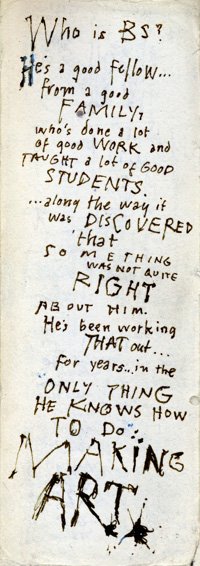 WHO is BS?
He's a good fellow...
from a good
FAMILY,
who's done a lot
of good WORK and
TAUGHT a lot of GOOD
STUDENTS.
...along the way it
was DISCOVERED
that
SOMETHING
WAS NOT QUITE
RIGHT
ABOUT HIM.
He's been working
THAT out...
for years... in the
ONLY THING
HE KNOWS HOW
TO DO...
MAKING
ART